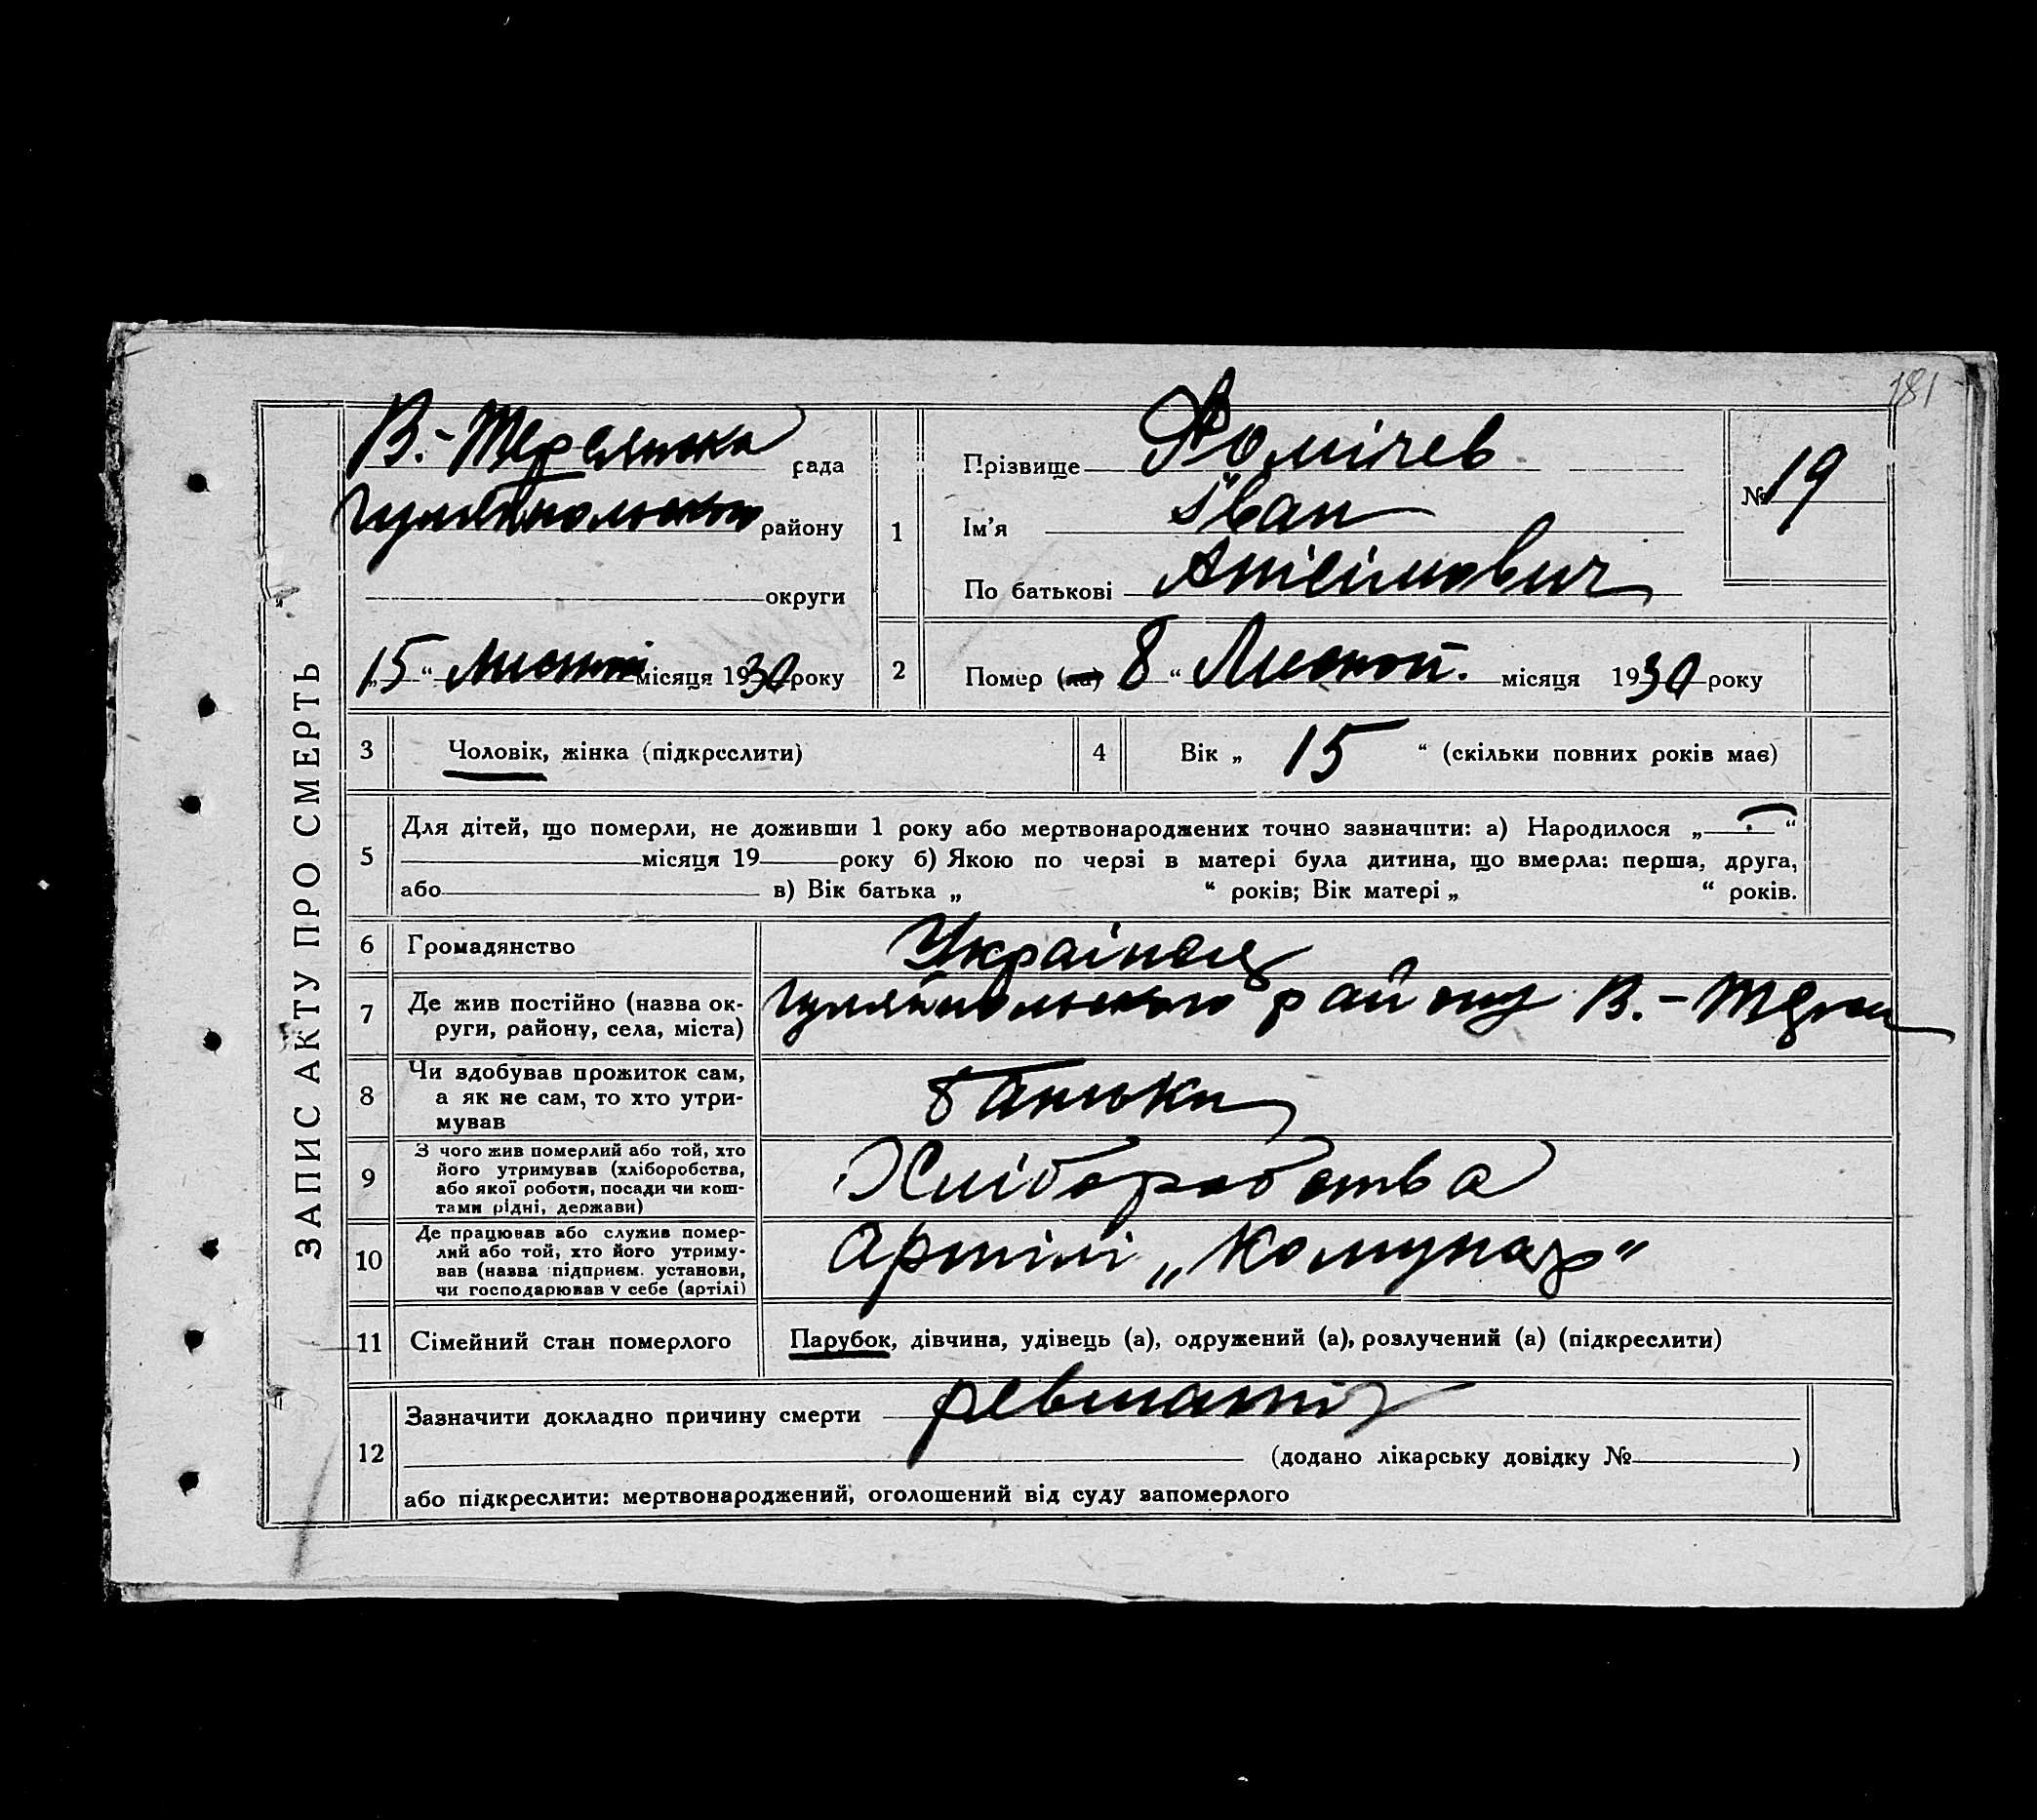 181
ЗАПИС АКТУ ПРО СМЕРТЬ
В.-Терсянська рада
Гуляйпольського району
округи
„15“ Листоп місяця 1930 року
1
Прізвище Фомічев
Ім’я Іван
По батькові Антімович
№ 19
2 Помер (ла) 8 “ Листоп. місяця 1930 року
3 Чоловік, жінка (підкреслити)
4 Вік „ 15 “ (скільки повних років має)
5 Для дітей, що померли, не доживши 1 року або мертвонароджених точно зазначити: а) Народилося „ “
місяця 19 року б) Якою по черзі в матері була дитина, що вмерла: перша, друга,
або в) Вік батька „ “ років; Вік матері „ “ років.
6 Громадянство Українець
7 Де жив постійно (назва ок-
руги, району, села, міста) Гуляйпольского району В.-
8 Чи здобував прожиток сам,
а як не сам, то хто утри-
мував батьки
9 З чого жив померлий або той, хто
його утримував (хліборобства,
або якої роботи, посади чи кош-
тами рідні, держави) Хліборобства
10 Де працював або служив помер-
лий або той, хто його утриму-
вав (назва підприєм. установи,
чи господарював у себе (артілі) Артілі „Комунар“
11 Сімейний стан померлого Парубок, дівчина, удівець (а), одружений (а), розлучений (а) (підкреслити)
12 Зазначити докладно причину смерти ревматіз
(додано лікарську довідку № )
або підкреслити: мертвонароджений, оголошений від суду запомерлого